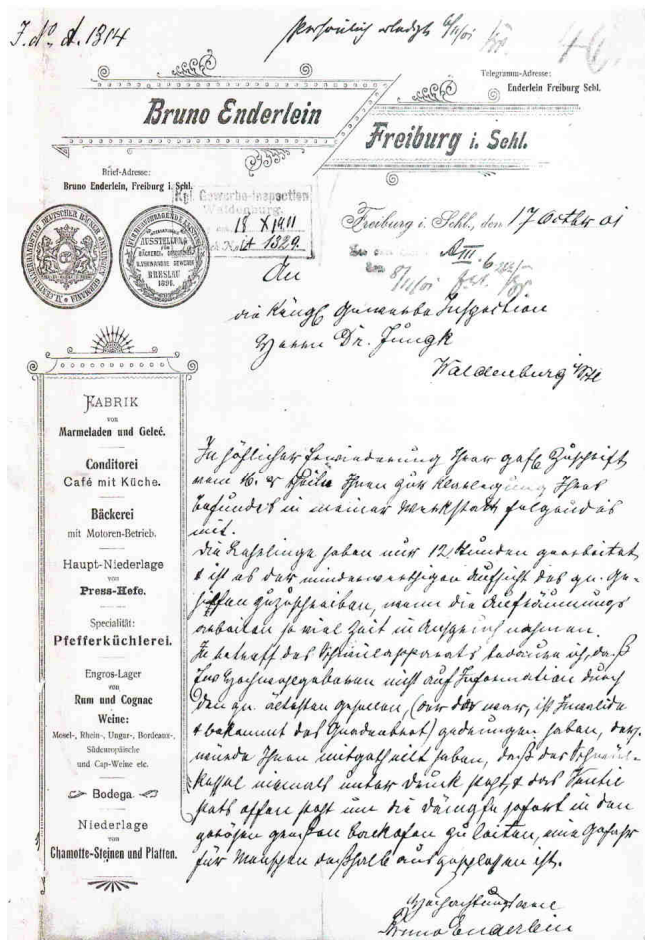 J. No. A. 1314
Persönlich erledigt 6/11/01
46.
Telegramm-Adresse:
Enderlein Freiburg Schl.
Bruno Enderlein
Freiburg i. Schl.
Brief-Adresse:
Bruno Enderlein, Freiburg i. Schl.
Kgl. Gewerbe-Inspection
Waldenburg.
18 X 1911
1329.
AUSSTELLUNG
BRESLAU
Freiburg i. Schl., den 17 Octbr 01
8/11/01
An
die Köngl Gewerbe Inspection
Herrn Dr. Jungk
Waldenburg
FABRIK
von
Marmeladen und Geleé.
Conditorei
Café mit Küche.
Bäckerei
mit Motoren-Betrieb.
Haupt-Niederlage
von
Press-Hefe.
Specialität:
Pfefferküchlerei.
Engros-Lager
von
Rum und Cognac
Weine:
Mosel-, Rhein-, Ungar-, Bordeaux-,
Südeuropäische
und Cap-Weine etc.
Bodega
Niederlage
von
Chamotte-Steinen und Platten.
In höflicher Erwiederung Ihrer gefl. Zuschrift
vom 16. theile Ihnen zur Klarlegung Ihres
Befundes in meiner Werkstatt folgendes
mit.
Die Lehrlinge haben nur 12 Stunden gearbeitet
& ist es der minderwerthigen Aufsicht des qu. Ge-
hilfen zuzuschreiben, wenn die Aufräumungs
arbeiten so viel Zeit in Anspruch nahmen.
In betreff des bedaure ich, daß
Ew Hochwohlgeboren nicht auf Information durch
den qu. ältesten Gesellen, (der ist Invalide
& bekommt das Gnadenbrot) gedrungen haben, der
würde Ihnen mitgetheilt haben, daß der
kessel niemals unter Druck steht & das Ventil
stets offen steht um die Dämpfe sofort in den
großen Backofen zu leiten, eine Gefahr
für Menschen deßhalb ausgeschlossen ist.
Hochachtungsvoll
Bruno Enderlein